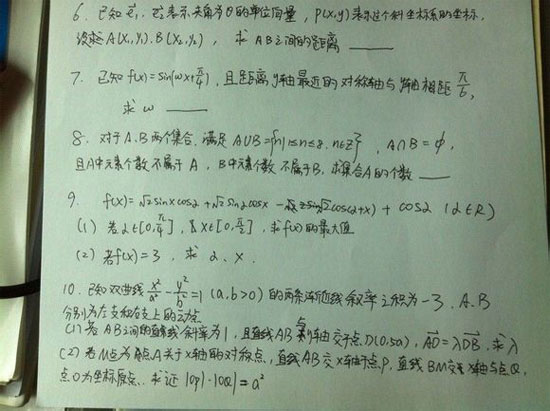 6. 已知 e₁, e₂表示夹角为θ的单位向量, P(x,y)表示这个斜坐标系的坐标,
设点 A(X₁,Y₁). B(X₂,Y₂), 求 AB之间的距离
7. 已知 f(x)=sin(ωx+π/4), 且距离y轴最近的对称轴与y轴相距 π/6,
求 ω
8. 对于A.B两个集合, 满足 A∪B={n|1≤n≤8, n∈Z}, A∩B=ϕ,
且A中元素个数不属于A, B中元素个数不属于B, 求集合A的个数
9. f(x)=√2sinxcosα+√2sinαcosx - cos(α+x) + cosα (α∈R)
(1) 若 α∈[0,π/4], X∈[0,π/2], 求f(x)的最大值
(2) 若f(x)=3, 求 α、x.
10. 已知双曲线 x²/a²-y²/b²=1 (a,b>0) 的两条渐近线斜率之积为-3. A.B
分别为左支和右支上的动点
(1) 若AB之间的直线斜率为1, 且直线AB与y轴交于点D(0,5a), AD=λDB, 求λ
(2) 若M点为点A关于x轴的对称点, 直线AB交X轴于点P, 直线BM交x轴与点Q,
点O为坐标原点. 求证 |OP|·|OQ|=a²